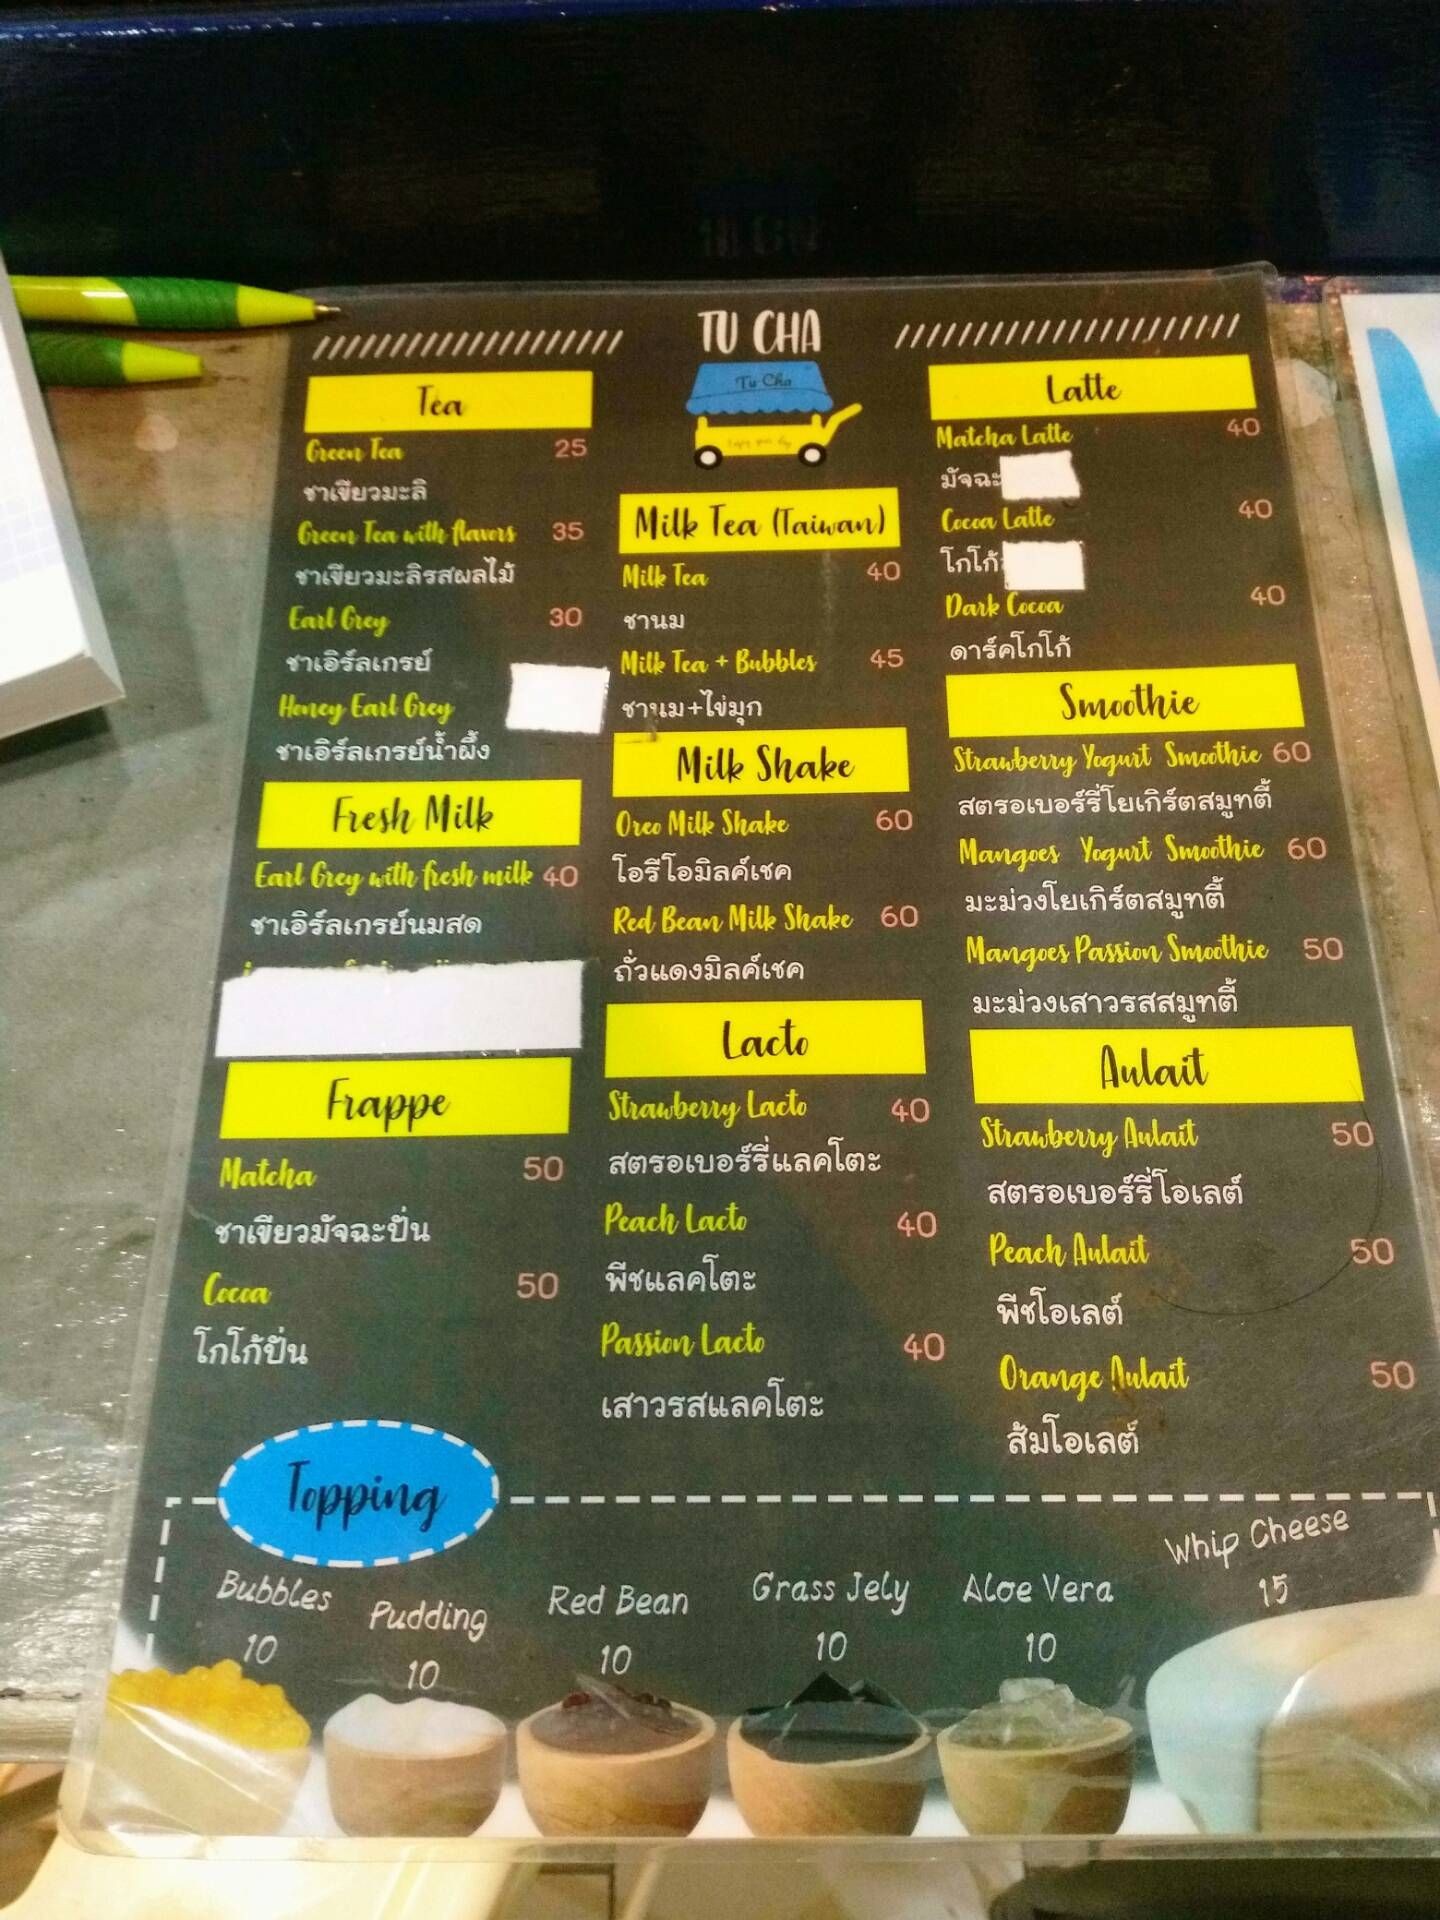 TU CHA
Tu Cha
Tea
Green Tea 25
ชาเขียวมะลิ
Green Tea with flavors 35
ชาเขียวมะลิรสผลไม้
Earl Grey 30
ชาเอิร์ลเกรย์
Honey Earl Grey
ชาเอิร์ลเกรย์น้ำผึ้ง
Fresh Milk
Earl Grey with fresh milk 40
ชาเอิร์ลเกรย์นมสด
Frappe
Matcha 50
ชาเขียวมัจฉะปั่น
Cocoa 50
โกโก้ปั่น
Milk Tea (Taiwan)
Milk Tea 40
ชานม
Milk Tea + Bubbles 45
ชานม+ไข่มุก
Milk Shake
Oreo Milk Shake 60
โอรีโอมิลค์เชค
Red Bean Milk Shake 60
ถั่วแดงมิลค์เชค
Lacto
Strawberry Lacto 40
สตรอเบอร์รี่แลคโตะ
Peach Lacto 40
พีชแลคโตะ
Passion Lacto 40
เสาวรสแลคโตะ
Latte
Matcha Latte 40
มัจฉะ
Cocoa Latte 40
โกโก้
Dark Cocoa 40
ดาร์คโกโก้
Smoothie
Strawberry Yogurt Smoothie 60
สตรอเบอร์รี่โยเกิร์ตสมูทตี้
Mangoes Yogurt Smoothie 60
มะม่วงโยเกิร์ตสมูทตี้
Mangoes Passion Smoothie 50
มะม่วงเสาวรสสมูทตี้
Aulait
Strawberry Aulait 50
สตรอเบอร์รี่โอเลต์
Peach Aulait 50
พีชโอเลต์
Orange Aulait 50
ส้มโอเลต์
Topping
Bubbles 10
Pudding 10
Red Bean 10
Grass Jely 10
Aloe Vera 10
Whip Cheese 15